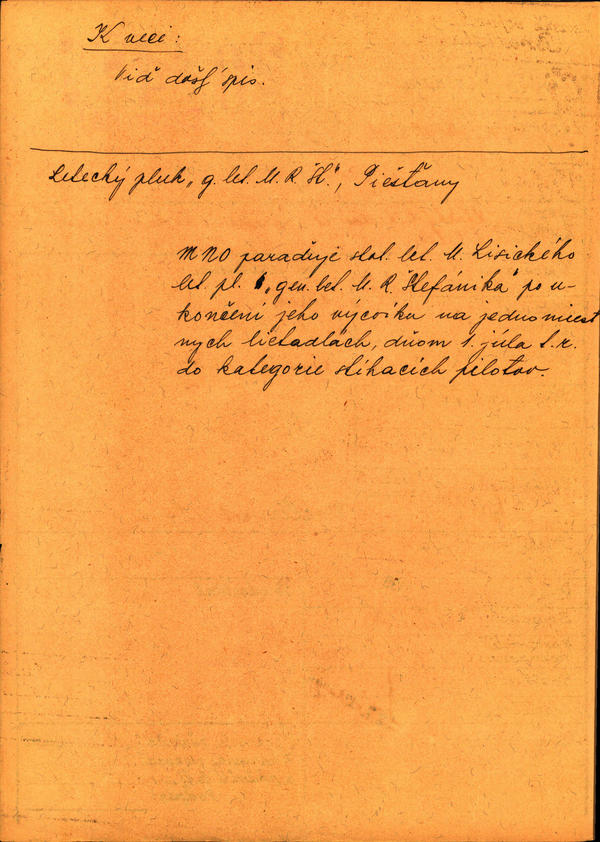 K veci:
Viď došlý spis.
Letecký pluk „g. let. M. R. Š.", Piešťany
MNO paraďuje stot. let. M. Lisického
let. pl. „gen. let. M. R. Štefánika" po u-
končení jeho výcviku na jednomiest
nych lietadlách, dňom 1. júla t. r.
do kategorie stíhacích pilotov.